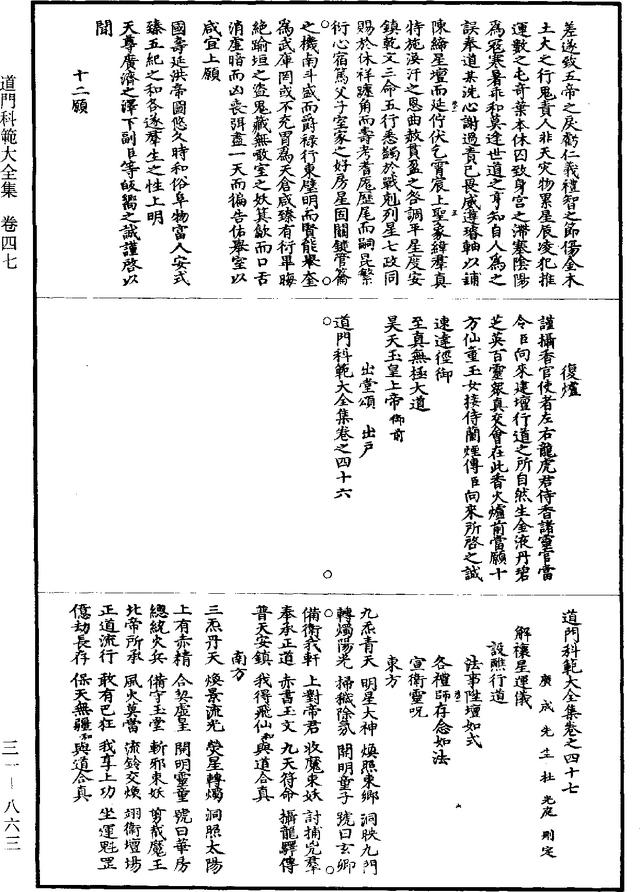 差遂致五帝之戾虧仁義禮智之節傷金木
土火之行鬼責人非天灾物累星辰凌犯推
運數之屯奇葉本休囚致身宫之滯蹇陰陽
為寇寒暑乖和莫逢世道之亨知自人為之
誤奉道某洗心謝過責己畏威遵璿軸以鋪
陳締星壇而延佇伏乞霄宸上聖象緯羣真
特施渙汗之恩曲赦貫盈之咎調平星度安
鎮乾文三命五行悉蠲於戰剋列星七政同
賜於休祥躔角而壽考耆厖歷尾而嗣昆繁
衍心宿篤父子室家之好房星固關鍵管籥
之機南斗盛而爵祿行東壁明而賢能舉奎
為武庫罔或不充胃為天倉咸臻有衍畢晦
絕踰垣之盜鬼藏無瞰室之妖箕歛而口舌
消虛暗而凶喪弭盡一天而徧告佑舉室以
咸宜上願
國壽延洪帝圖悠久時和俗阜物富人安式
臻五紀之和各遂羣生之性上明
天尊廣濟之澤下副臣等皈嚮之誠謹啓以
聞
十二願
復爐
謹攝香官使者左右龍虎君侍香諸靈官當
令臣向來建壇行道之所自然生金液丹碧
芝英百靈衆真交會在此香火爐前當願十
方仙童玉女接侍蘭煙傳臣向來所啓之誠
速達徑御
至真無極大道
昊天玉皇上帝御前
出堂頌 出戶
道門科範大全集卷之四十六
道門科範大全集卷之四十七
廣成先生杜光庭刪定
解禳星運儀
設醮行道
法事陞壇如式
各禮師存念如法
宣衛靈呪
東方
九炁青天 明星大神 煥照東鄉 洞映九門
轉燭陽光 掃穢除氛 開明童子 號曰玄卿
備衛我軒 上對帝君 收魔束妖 討捕兇羣
奉承正道 赤書玉文 九天符命 攝龍驛傳
普天安鎮 我得飛仙 與道合真
南方
三炁丹天 煥景流光 熒星轉燭 洞照太陽
上有赤精 合契虛皇 開明靈童 號曰華房
總統火兵 備守玉堂 斬邪束妖 剪截魔王
北帝所承 風火莫當 流鈴交煥 翊衛壇場
正道流行 敢有巴狂 我享上功 坐運魁罡
億劫長存 保天無疆 與道合真
道門科範大全集 卷四七
三一—八六三